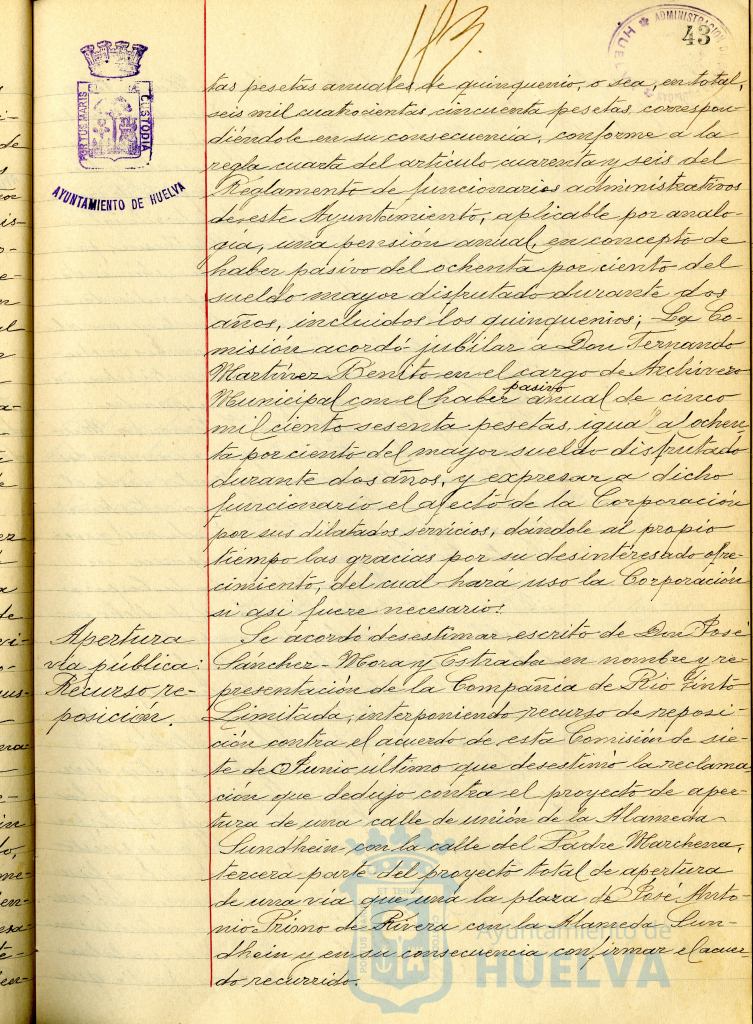 113.
ADMINISTRACION
HUELVA
43
PORTUS MARIS
CUSTODIA
AYUNTAMIENTO DE HUELVA
tas pesetas anuales de quinquenio, o sea, en total,
seis mil cuatrocientas cincuenta pesetas, correspon-
diéndole en su consecuencia, conforme a la
regla cuarta del artículo cuarenta y seis del
Reglamento de funcionarios administrativos
de este Ayuntamiento, aplicable por analo-
gía, una pensión anual, en concepto de
haber pasivo del ochenta por ciento del
sueldo mayor disfrutado durante dos
años, incluidos los quinquenios; La Co-
misión acordó jubilar a Don Fernando
Martínez Benito en el cargo de Archivero
Municipal con el haber pasivo anual de cinco
mil ciento sesenta pesetas, igual al ochen-
ta por ciento del mayor sueldo disfrutado
durante dos años, y expresar a dicho
funcionario el afecto de la Corporación
por sus dilatados servicios, dándole al propio
tiempo las gracias por su desinteresado ofre-
cimiento, del cual hará uso la Corporación
si asi fuere necesario.
Apertura
vía pública:
Recurso re-
posición.
Se acordó desestimar escrito de Don José
Sánchez-Mora y Estrada en nombre y re-
presentación de la Compañía de Rio Tinto
Limitada, interponiendo recurso de reposi-
ción contra el acuerdo de esta Comisión de sie-
te de Junio último que desestimó la reclama
ción que dedujo contra el proyecto de aper-
tura de una calle de unión de la Alameda
Sundhein con la calle del Padre Marchena,
tercera parte del proyecto total de apertura
de una vía que una la plaza de José Anto-
nio Primo de Rivera con la Alameda Sun-
dhein y en su consecuencia confirmar el acuer-
do recurrido.
Ayuntamiento de
HUELVA